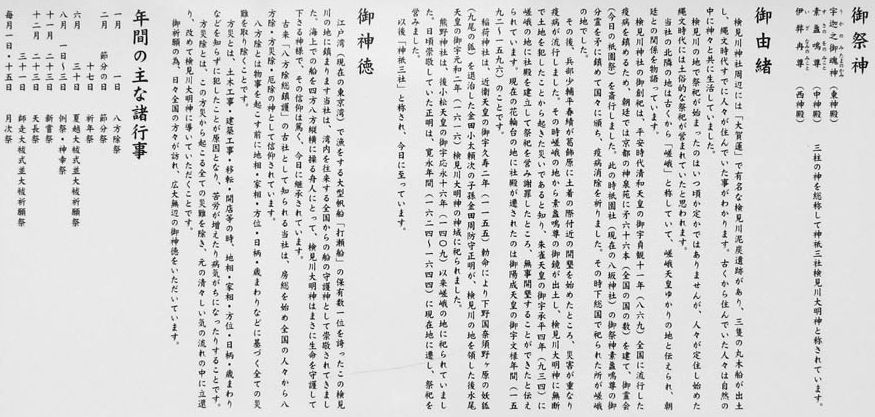 御祭神
宇迦之御魂神（東神殿）
うかのみたまのかみ
素盞嗚尊（中神殿）
すさのおのみこと
伊弉冉尊（西神殿）
いざなみのみこと
三柱の神を総称して神祇三社検見川大明神と称されています。
御由緒
検見川神社周辺には「大賀蓮」で有名な検見川泥炭遺跡があり、三隻の丸木船が出土
し、縄文時代すでに人々が住んでいた事がわかります。古くから住んでいた人々は自然の
中に神々と共に生活していました。
検見川の地で祭祀が始まったのはいつ頃か定かではありませんが、人々が定住し始めた
縄文時代には土俗的な祭祀が営まれていたと思われます。
当社の北隣の地は古くから「嵯峨」と称していて、嵯峨天皇ゆかりの地と伝えられ、朝
廷との関係を物語っています。
検見川神社の御創祀は、平安時代清和天皇の御宇貞観十一年（八六九）全国に流行した
疫病を鎮めるため、朝廷では京都の神泉苑に矛六十六本（全国の国の数）を建て、御霊会
（今日の祇園祭）を斎行しました。此の時祇園社（現在の八坂神社）の御祭神素盞嗚尊の御
分霊を矛に鎮めて国々に頒ち、疫病消除を祈りました。その時下総国で祀られた所が嵯峨
の地でした。
その後、兵部少輔平春績が葛飾原に土着の際付近の開墾を始めたところ、災害が重なり
疫病が流行しました。その時嵯峨の地から素盞嗚尊の御鏡が出土し、検見川大明神に無断
で土地を犯したことから起きた災いであると知り、朱雀天皇の御宇承平四年（九三四）に
嵯峨の地に社殿を建立して祭祀を営み謝罪したところ、無事開墾することができたと伝え
られています。現在の花輪台の地に社殿が遷されたのは後陽成天皇の御宇文禄年間（一五
九二～一五九六）のことです。
稲荷神社は、近衛天皇の御宇久寿二年（一一五五）勅命により下野国奈須野ヶ原の妖狐
（九尾の狐）を退治した金田小太頼次の子孫金田周防守正明が、検見川の地を領した後水尾
天皇の御宇元和二年（一六一六）検見川大明神の神域に祀られました。
熊野神社は、後小松天皇の御宇応永十六年（一四〇九）以来嵯峨の地に祀られていまし
た。日頃崇敬していた正明は、寛永年間（一六二四～一六四四）に現在地に遷し、祭祀を
営みました。
以後「神祇三社」と称され、今日に至っています。
御神徳
江戸湾（現在の東京湾）で漁をする大型帆船「打瀬船」の保有数一位を誇ったこの検見
川の地に鎮まります当社は、湾内を往来する全国からの船の守護神として崇敬されてきまし
た。海上での船を四方八方縦横に操る舟人にとって、検見川大明神はまさに生命を守護して
下さる神様で、その信仰は篤く、今日に継承されています。
古来「八方除総鎮護」の古社として知られる当社は、房総を始め全国の人々から八
方除・方災除・厄除の神として信仰されています。
八方除とは物事を起こす前に地相・家相・方位・日柄・歳まわりなどに基づく全ての災
難を取り除くことです。
方災とは、土木工事・建築工事・移転・開店等の時、地相・家相・方位・日柄・歳まわり
などを知らずに犯したことが原因となり、苦労が増えたり病気がちになったりすることです。
方災除とは、この方災から起こる全ての災難を除き、元の清々しい気の流れの中に立還
り、改めて検見川大明神に導いていただくことです。
御祈願の為、日々全国の方々が訪れ、広大無辺の御神徳をいただいています。
年間の主な諸行事
一月　一日　八方除祭
二月　節分の日　節分祭
十七日　祈年祭
六月　三十日　夏越大祓式並大祓祈願祭
八月　一日～三日　例祭・神幸祭
十一月　二十三日　新嘗祭
十二月　二十三日　天長祭
三十一日　師走大祓式並大祓祈願祭
毎月一日・十五日　月次祭